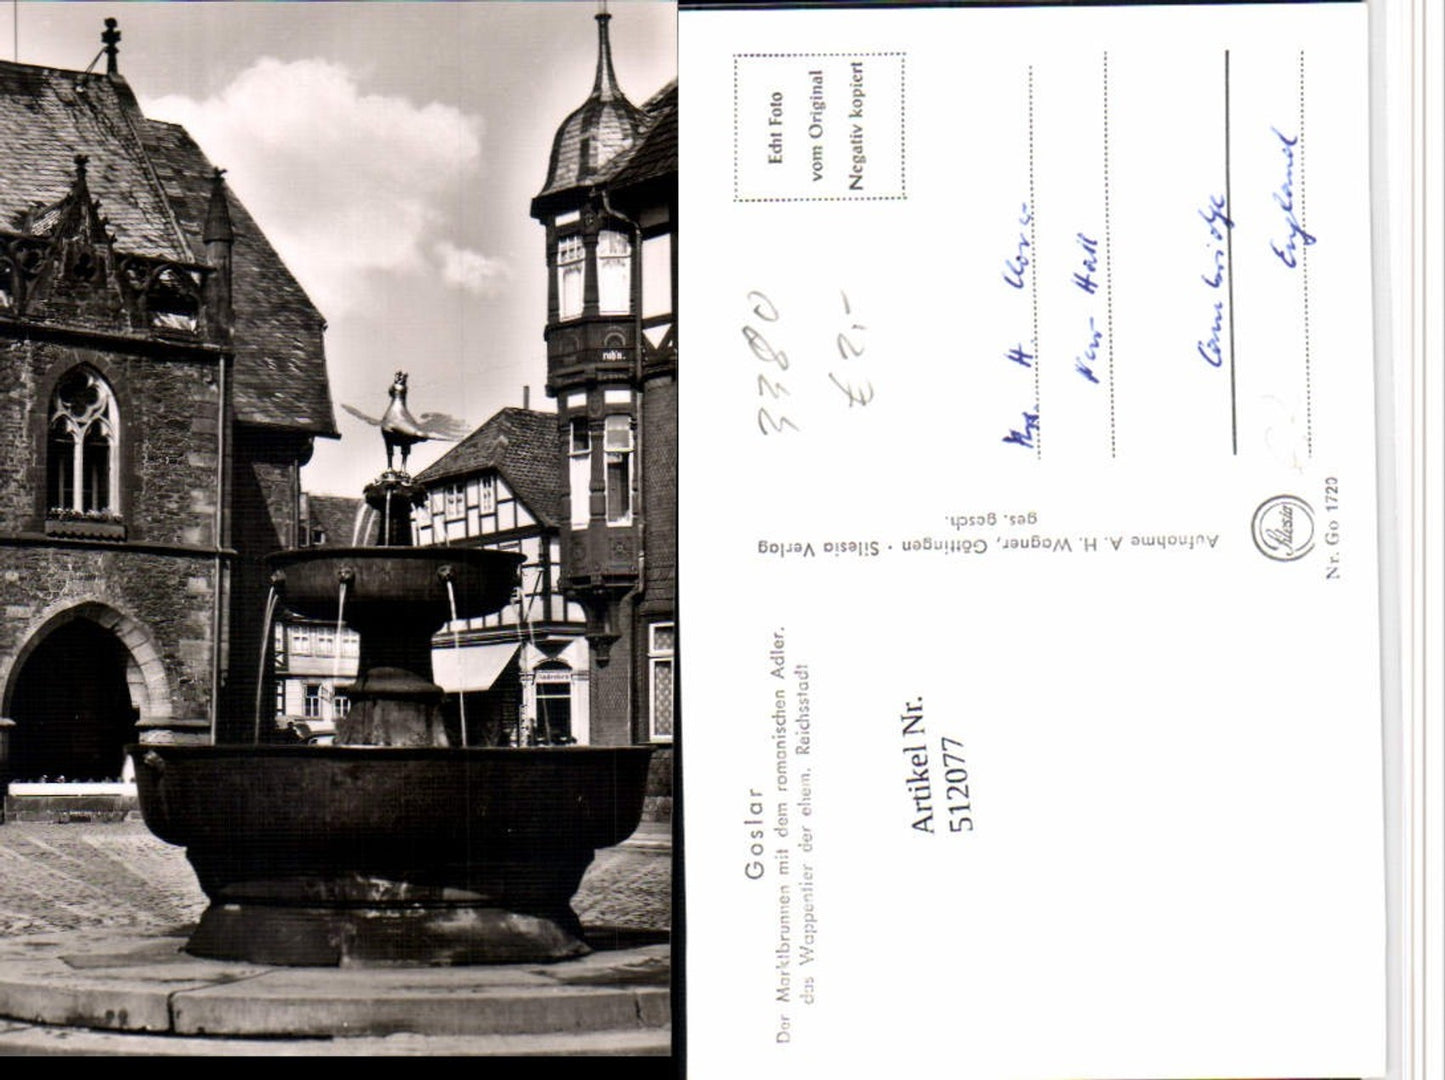 Goslar
Der Marktbrunnen mit dem romanischen Adler,
das Wappentier der ehem. Reichsstadt
Artikel Nr.
512077
Aufnahme A. H. Wagner, Göttingen · Silesia Verlag
ges. gesch.
Silesia
Nr. Go 1720
3380
€ 2,-
Echt Foto
vom Original
Negativ kopiert
H.
New Hall
Cambridge
England